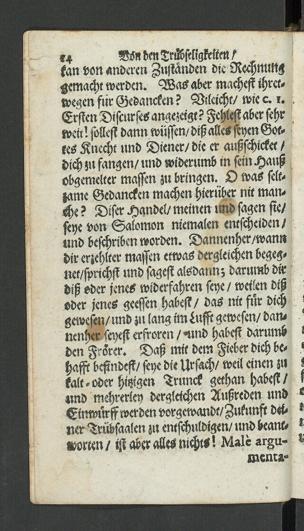 14 Von den Trübseligkeiten /
kan von anderen Zuständen die Rechnung
gemacht werden. Was aber machest ihret-
wegen für Gedancken? Vileicht / wie c. 1.
Ersten Discurses angezeigt? Fehlest aber sehr
weit! sollest dann wüssen / diß alles seyen Got-
tes Knecht und Diener / die er außschicket /
dich zu fangen / und widerumb in sein Hauß
obgemelter massen zu bringen. O was selt-
zame Gedancken machen hierüber nit man-
che? Diser Handel / meinen und sagen sie /
seye von Salomon niemalen entscheiden /
und beschriben worden. Dannenher / wann
dir erzehlter massen etwas dergleichen begeg-
net / sprichst und sagest alsdann; darumb dir
diß oder jenes widerfahren seye / weilen diß
oder jenes geessen habest / das nit für dich
gewesen / und zu lang im Lufft gewesen / dan-
nenher seyest erfroren / und habest darumb
den Frörer. Daß mit dem Fieber dich be-
hafft befindest / seye die Ursach / weil einen zu
kalt- oder hitzigen Trunck gethan habest /
und mehrerley dergleichen Außreden und
Einwürff werden vorgewandt / Zukunft dei-
ner Trübsaalen zu entschuldigen / und beant-
worten / ist aber alles nichts! Malè argu-
menta-